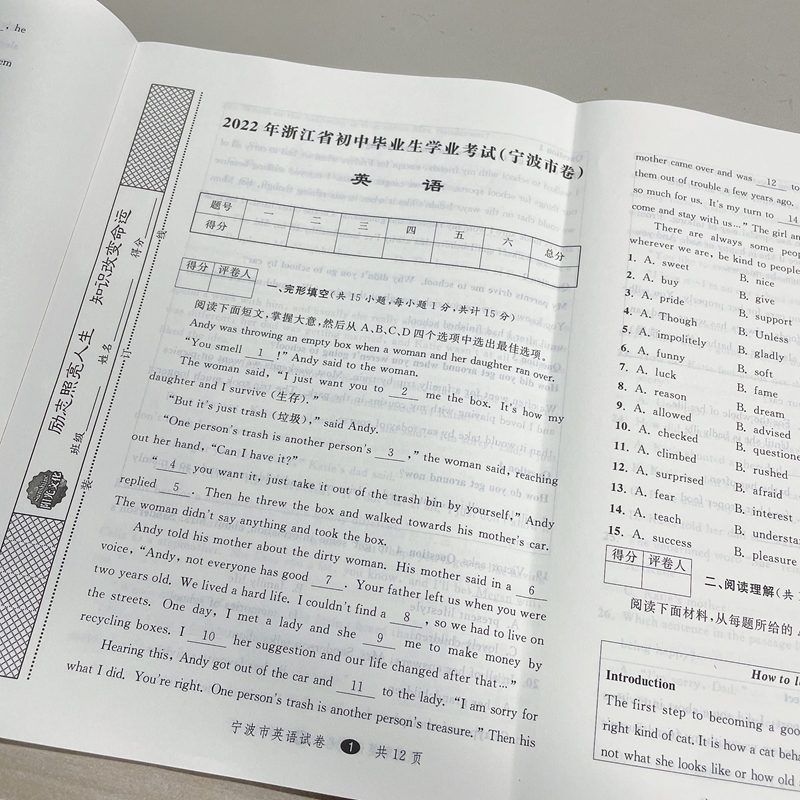 , he
em
励志照亮人生 知识改变命运
班级 姓名 得分
装 订 线
2022年浙江省初中毕业生学业考试(宁波市卷)
英 语
题号 一 二 三 四 五 六 总分
得分
得分 评卷人
一、完形填空(共15小题,每小题1分,共计15分)
阅读下面短文,掌握大意,然后从A、B、C、D四个选项中选出最佳选项。
Andy was throwing an empty box when a woman and her daughter ran over.
"You smell 1 !" Andy said to the woman.
The woman said, "I just want you to 2 me the box. It's how my
daughter and I survive (生存)."
"But it's just trash (垃圾)," said Andy.
"One person's trash is another person's 3 ," the woman said, reaching
out her hand, "Can I have it?"
" 4 you want it, just take it out of the trash bin by yourself," Andy
replied 5 . Then he threw the box and walked towards his mother's car.
The woman didn't say anything and took the box.
Andy told his mother about the dirty woman. His mother said in a 6
voice, "Andy, not everyone has good 7 . Your father left us when you were
two years old. We lived a hard life. I couldn't find a 8 , so we had to live on
the streets. One day, I met a lady and she 9 me to make money by
recycling boxes. I 10 her suggestion and our life changed after that…"
Hearing this, Andy got out of the car and 11 to the lady. "I am sorry for
what I did. You're right. One person's trash is another person's treasure." Then his
宁波市英语试卷 1 共12页
mother came over and was 12 to
them out of trouble a few years ago.
so much for us. It's my turn to 14
come and stay with us…" The girl an
There are always some peop
wherever we are, be kind to people
1. A. sweet B. nice
2. A. buy B. give
3. A. pride B. support
4. A. Though B. Unless
5. A. impolitely B. gladly
6. A. funny B. soft
7. A. luck B. fame
8. A. reason B. dream
9. A. allowed B. advised
10. A. checked B. questione
11. A. climbed B. rushed
12. A. surprised B. afraid
13. A. fear B. interest
14. A. teach B. understa
15. A. success B. pleasure
得分 评卷人
二、阅读理解(共
阅读下面材料,从每题所给的
How to l
Introduction
The first step to becoming a goo
right kind of cat. It is how a cat beha
not what she looks like or how old